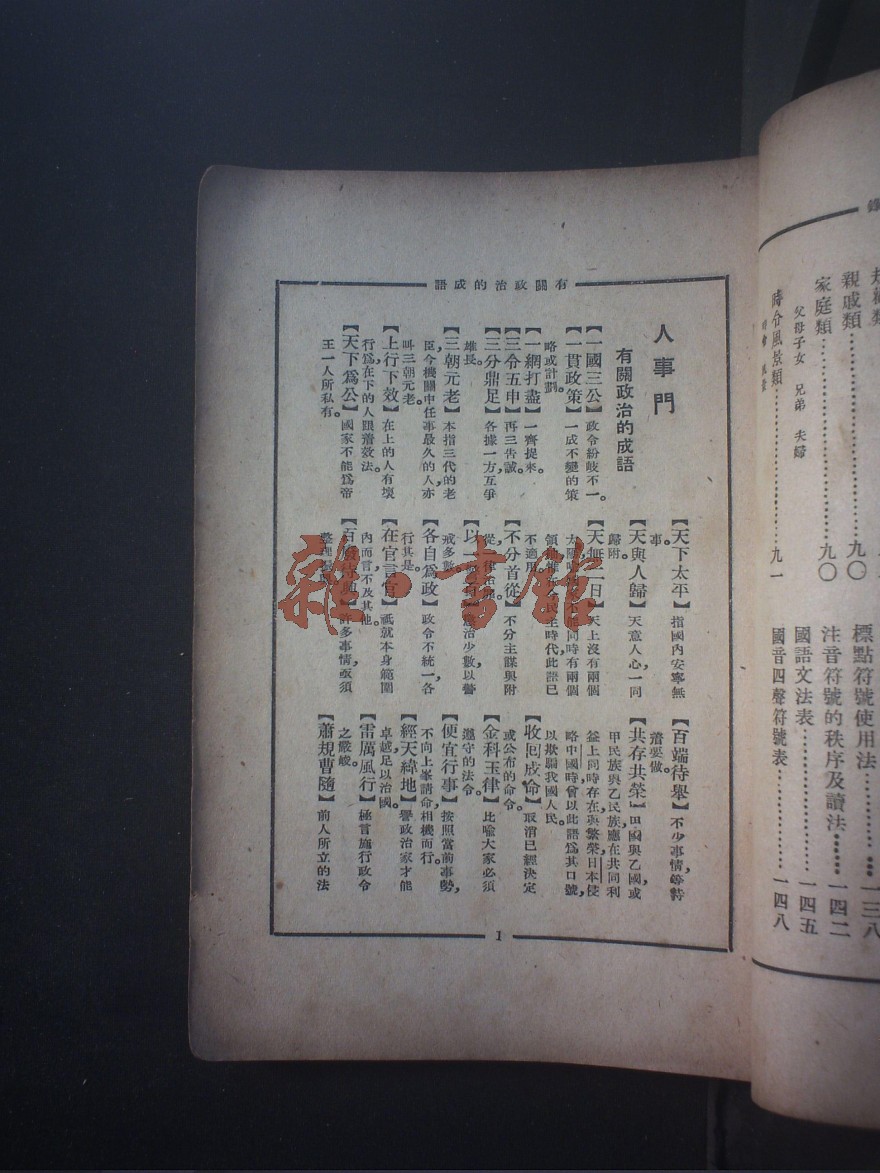 有關政治的成語
人事門
有關政治的成語
【一國三公】政令紛歧不一。
【一貫政策】一成不變的策
略或計劃。
【一網打盡】一齊捉來。
【三令五申】再三告誡。
【三分鼎足】各據一方，互爭
雄長。
【三朝元老】本指三代的老
臣，今機關中任事最久的人，亦
叫三朝元老。
【上行下效】在上的人有壞
行爲，在下的人跟着效法。
【天下爲公】國家不能爲帝
王一人所私有。
【天下太平】指國內安寧無
事。
【天與人歸】天意人心，一同
歸附。
【天無二日】天上沒有兩個
同時有兩個
民主時代，此語已
不適用。
【不分首從】不分主謀與附
從
【以一
治少數，以警
戒多數。
【各自爲政】政令不統一，各
行其是。
【在官言官】祇就本身範圍
內而言，不及其他。
【百廢待興】許多事情，亟須
整理
【百端待舉】不少事情，等待
着要做。
【共存共榮】甲國與乙國或
甲民族與乙民族，應在共同利
益上同時存在與繁榮，日本侵
略中國時，曾以此語爲其口號，
以欺騙我國人民。
【收回成命】取消已經決定
或公布的命令。
【金科玉律】比喻大家必須
遵守的法令。
【便宜行事】按照當前事勢，
不向上峯請命，相機而行。
【經天緯地】譽政治家才能
卓越，足以治國。
【雷厲風行】極言施行政令
之嚴峻。
【蕭規曹隨】前人所立的法
1
親戚類……九〇
家庭類……九〇
父母子女　兄弟　夫婦
時令風景類……九一
標點符號使用法……一三八
注音符號的秩序及讀法……一四二
國語文法表……一四五
國音四聲符號表……一四八
雜·書館